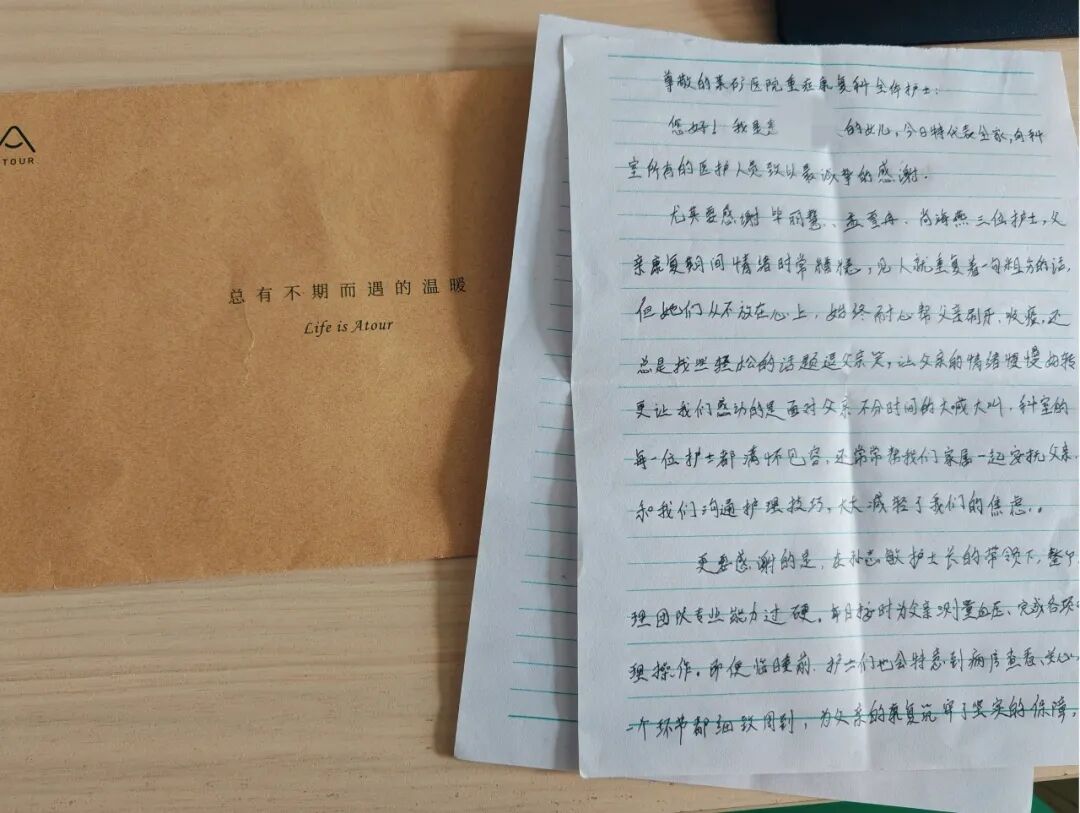 ATOUR
总有不期而遇的温暖
Life is Atour
尊敬的某矿医院重症康复科全体护士：
您好！我是患的女儿，今日特代表全家，向科
室所有的医护人员致以最诚挚的感谢．
尤其要感谢毕丽慧、孟至冉、尚海燕三位护士，父
亲康复期间情绪时常糟糕，见人就重复着一句粗鲁的话，
但她们从不放在心上，始终耐心帮父亲刷牙、吸痰，还
总是找些轻松的话题逗父亲笑，让父亲的情绪慢慢好转
更让我们感动的是面对父亲不分时间的大喊大叫，科室的
每一位护士都满怀包容，还常常帮我们家属一起安抚父亲．
和我们沟通护理技巧，大大减轻了我们的焦虑．．
更要感谢的是，在孙志敏护士长的带领下，整个
理团队专业能力过硬，每日按时为父亲测量血压、完成各项
理操作，即便临睡前，护士们也会特意到病房查看、关心
一个环节都细致周到，为父亲的康复筑牢了坚实的保障，